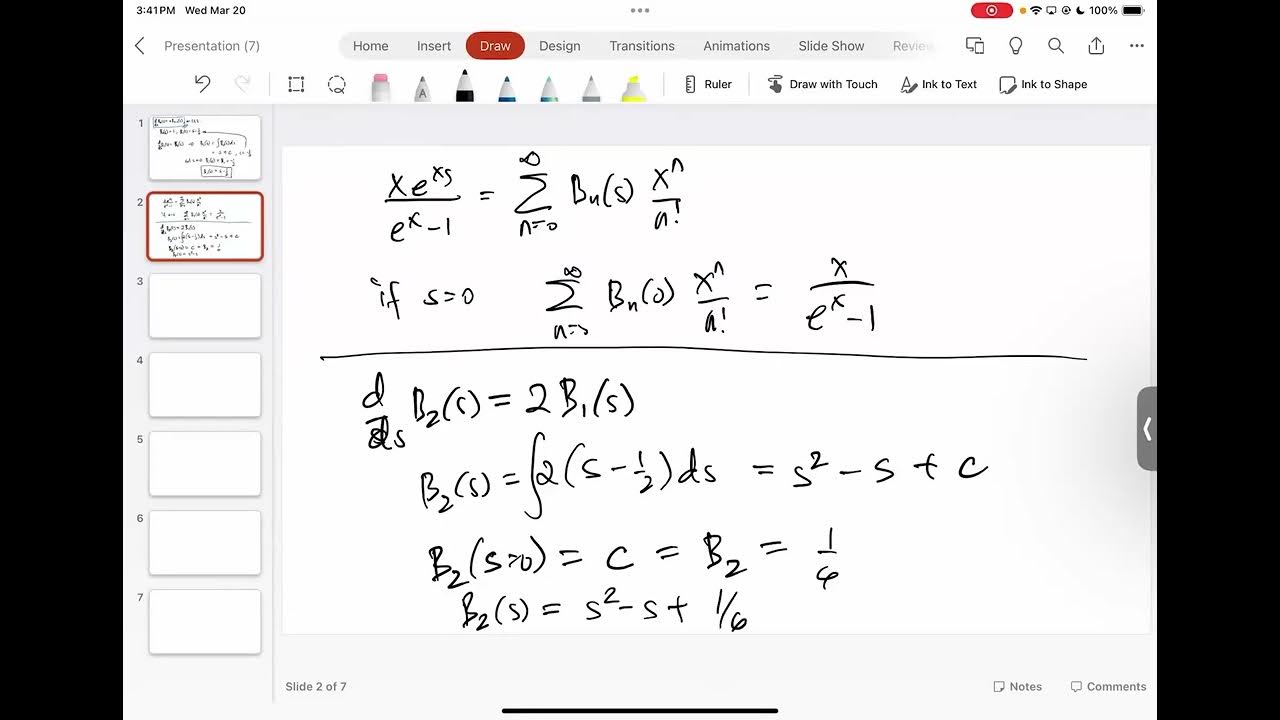 3:41 PM Wed Mar 20
100%
Presentation (7)
Home Insert Draw Design Transitions Animations Slide Show Review
Ruler Draw with Touch Ink to Text Ink to Shape
1
2
3
4
5
6
7
xe^{xs}/(e^x-1) = ∑_{n=0}^{∞} B_n(s) x^n/n!
if s=0 ∑_{n=0}^{∞} B_n(0) x^n/n! = x/(e^x-1)
d/ds B_2(s) = 2 B_1(s)
B_2(s) = ∫2(s-1/2)ds = s^2-s+c
B_2(s=0) = c = B_2 = 1/6
B_2(s) = s^2-s+1/6
Slide 2 of 7
Notes Comments